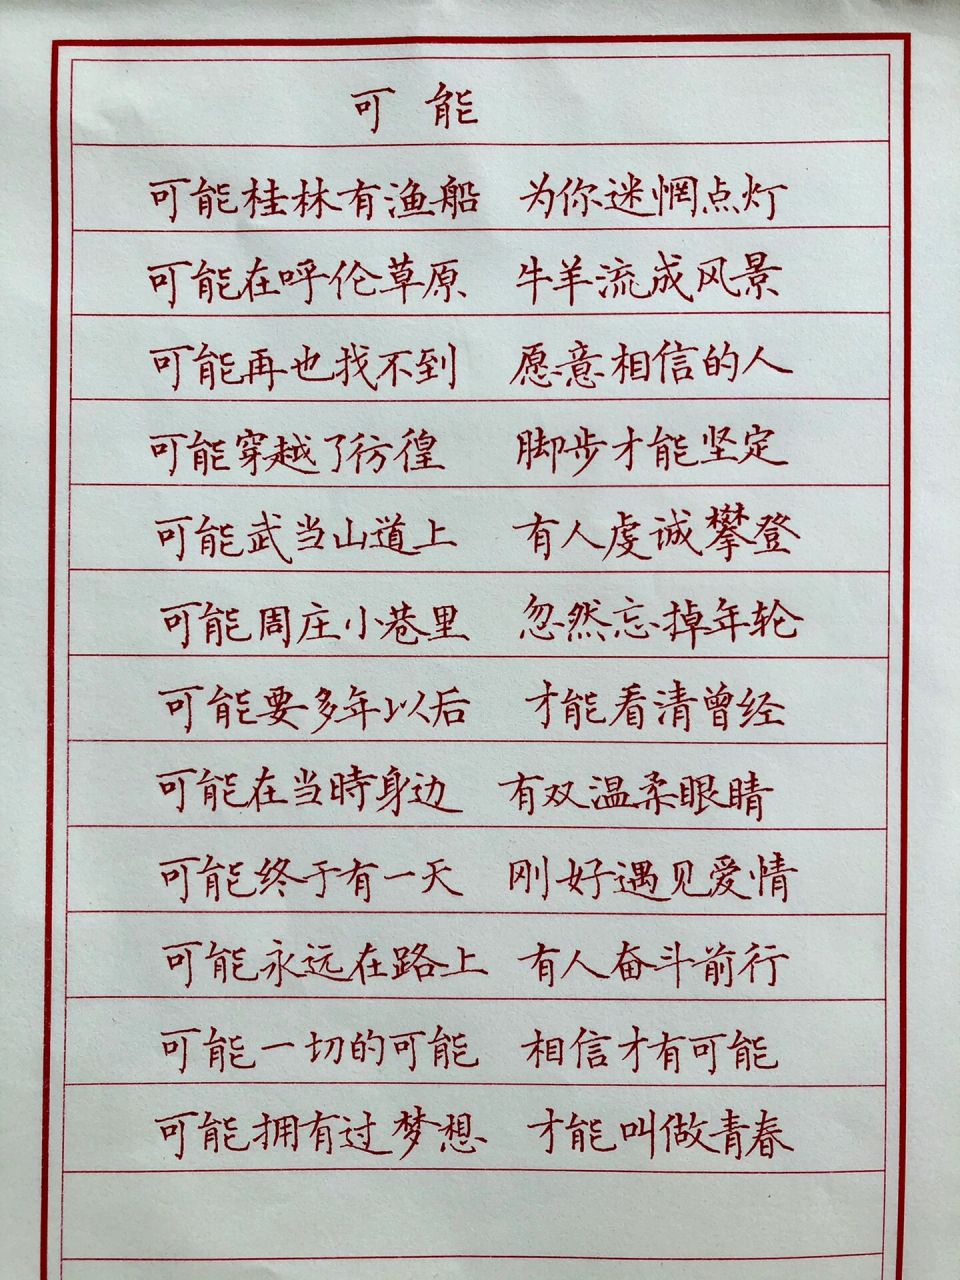 可能
可能桂林有渔船 为你迷惘点灯
可能在呼伦草原 牛羊流成风景
可能再也找不到 愿意相信的人
可能穿越了彷徨 脚步才能坚定
可能武当山道上 有人虔诚攀登
可能周庄小巷里 忽然忘掉年轮
可能要多年以后 才能看清曾经
可能在当時身边 有双温柔眼睛
可能终于有一天 刚好遇见爱情
可能永远在路上 有人奋斗前行
可能一切的可能 相信才有可能
可能拥有过梦想 才能叫做青春